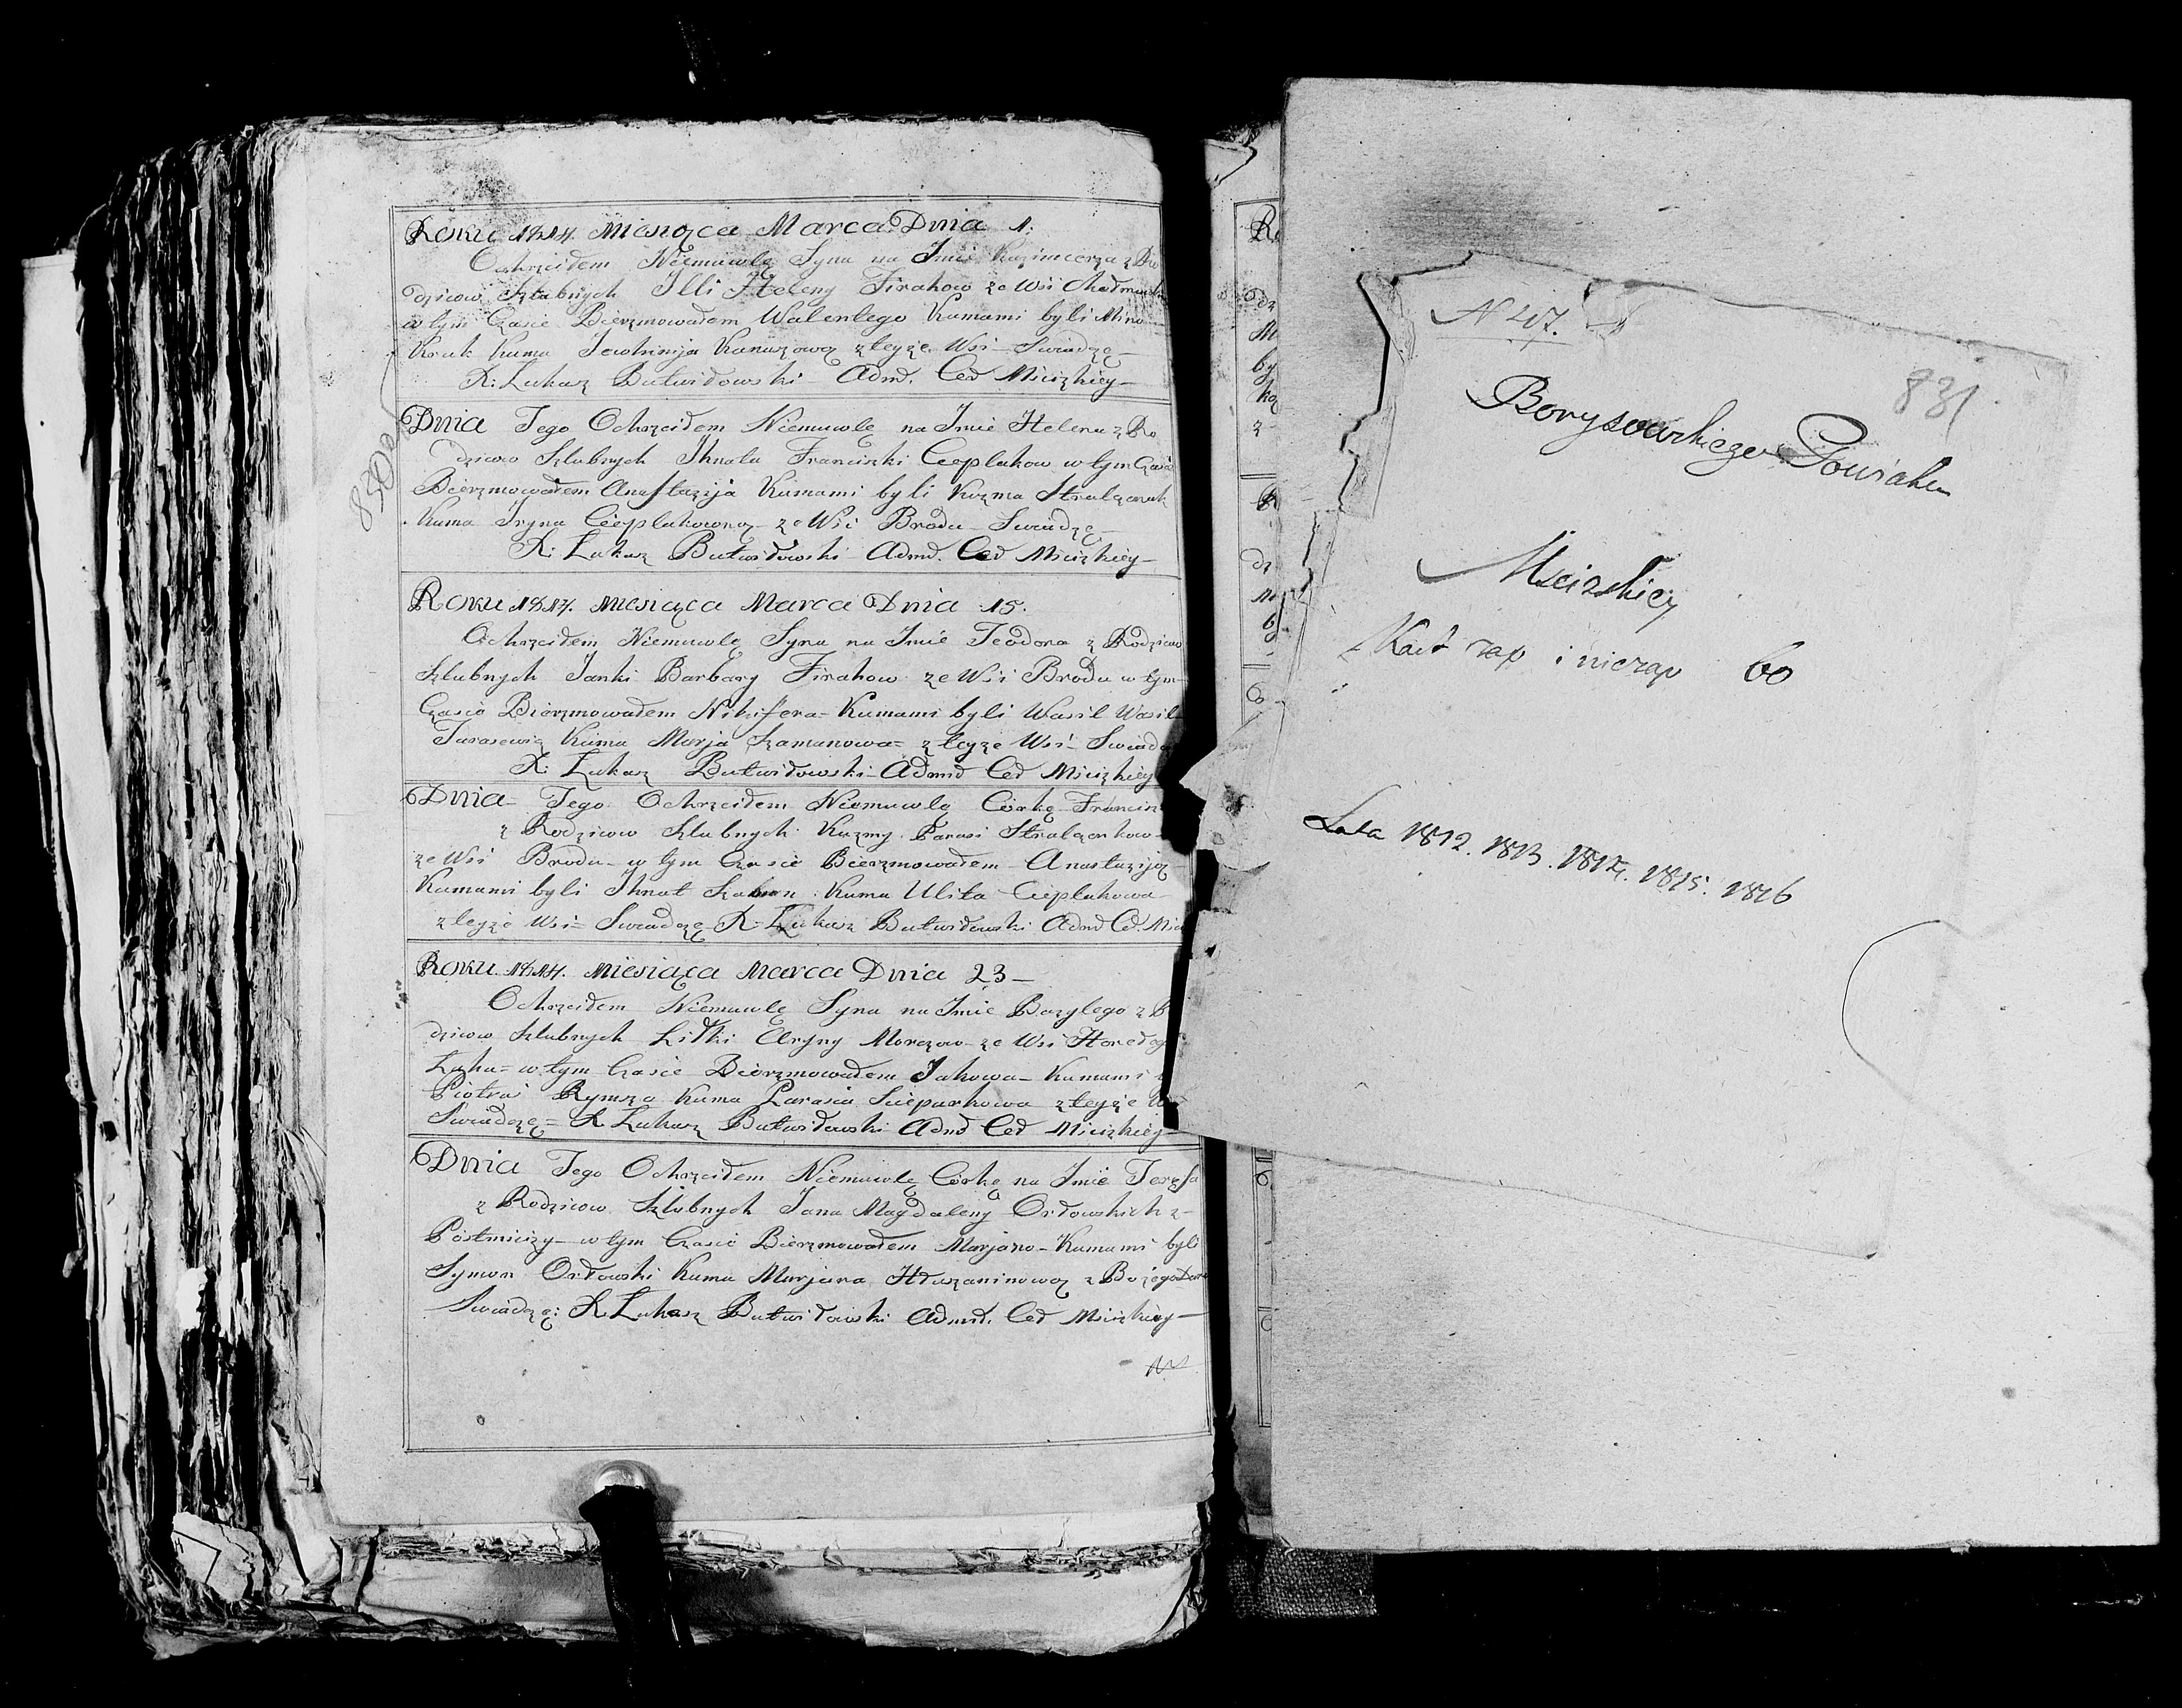 Roku 1814. Miesiąca Marca Dnia 1.
Ochrzciłem Niemuwlę Syna na Jmie Kazimierza z Ro
dzicow Szlubnych Illi Heleny Firahow ze Wsi
w tym Czasie Bierzmowałem Walentego Kumami byli
Kruk Kuma z teyże Wsi Swiadzę
X: Łukasz Butwiłowski Admś. Cer Mscizkiey
Dnia Tego Ochrzciłem Niemuwlę na Jmie Helena z Ro
dzicow Szlubnych Ihnata Franciszki Cieplakow w tym Czasie
Bierzmowałem Anastazija Kumami byli Kuzma Stralczonak
Kuma Iryna Cieplakowna ze Wsi Brodu Swiadzę
X: Łukasz Butwiłowski Admś. Cer Mscizkiey
Roku 1814. Miesiąca Marca Dnia 15.
Ochrzciłem Niemuwlę Syna na Jmie Teodora z Rodzicow
Szlubnych Janki Barbary Firahow ze Wsi Brodu w tym
Czasie Bierzmowałem Nikifera Kumami byli Wasil Wasil
Tarasewicz Kuma Marja Szamanowa z teyże Wsi Swiadzę
X: Łukasz Butwiłowski Admś Cer Mscizkiey
Dnia Tego Ochrzciłem Niemuwlę Córkę
z Rodzicow Szlubnych Kuzmy Parasi Stralczonkow
ze Wsi Brodu w tym Czasie Bierzmowałem Anastaziją
Kumami byli Ihnat Kuma Ulita Cieplakowa
z teyże Wsi Swiadzę X: Łukasz Butwiłowski Admś Cer.
Roku 1814. Miesiąca Marca Dnia 23
Ochrzciłem Niemuwlę Syna na Jmie Bazylego z
dzicow Szlubnych ze Wsi
Łuha w tym Czasie Bierzmowałem Jakowa Kumami
Piotra Rymsza Kuma Parasia z teyże
Swiadzę X Łukasz Butwiłowski Admś Cer Mscizkiey
Dnia Tego Ochrzciłem Niemuwlę Corkę na Jmie Teresa
z Rodzicow Szlubnych Jana Magdaleny Orłowskich z
w tym Czasie Bierzmowałem Kumami byli
Symon Orłowski Kuma Marjana z
Swiadzę: X Łukasz Butwiłowski Admś. Cer Mscizkiey
N 47.
831
Borysowskiego Powiatu
Mscizkiey
Kart zap i niezap 60
Lata 1812. 1813. 1814. 1815. 1816